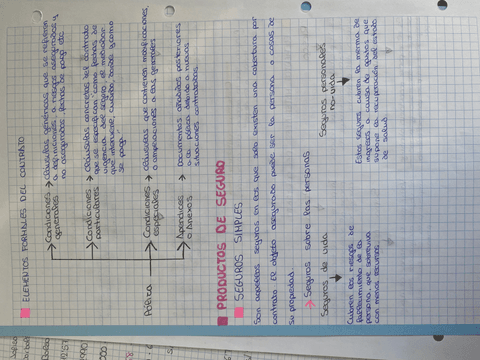 ELEMENTOS FORMALES DEL CONTRATO
Póliza
Condiciones generales → cláusulas genéricas que se refieren
a definiciones, riesgos asegurados y
no asegurados, formas de pago, etc
Condiciones particulares → cláusulas concretas del contrato
que se especifican como fechas de
vigencia del seguro, el mediador
que interviene, cuándo, dónde y cómo
se paga
Condiciones especiales → cláusulas que contienen modificaciones
o ampliaciones a las generales
Apéndices o Anexos → Documentos añadidos posteriores
a la póliza debido a nuevas
situaciones contratadas.
PRODUCTOS DE SEGURO
SEGUROS SIMPLES
Son aquellos seguros en los que solo existen una cobertura por
contrato. El objeto asegurado puede ser la persona o cosas de
su propiedad
→ Seguros sobre las personas
Seguros de vida
Cubren los riesgos de
fallecimiento de la
persona que
con menos recursos.
Seguros personales
no-vida
Estos seguros cubren la merma de
ingresos a causa de gastos que
supone la recuperación del estado
de salud.